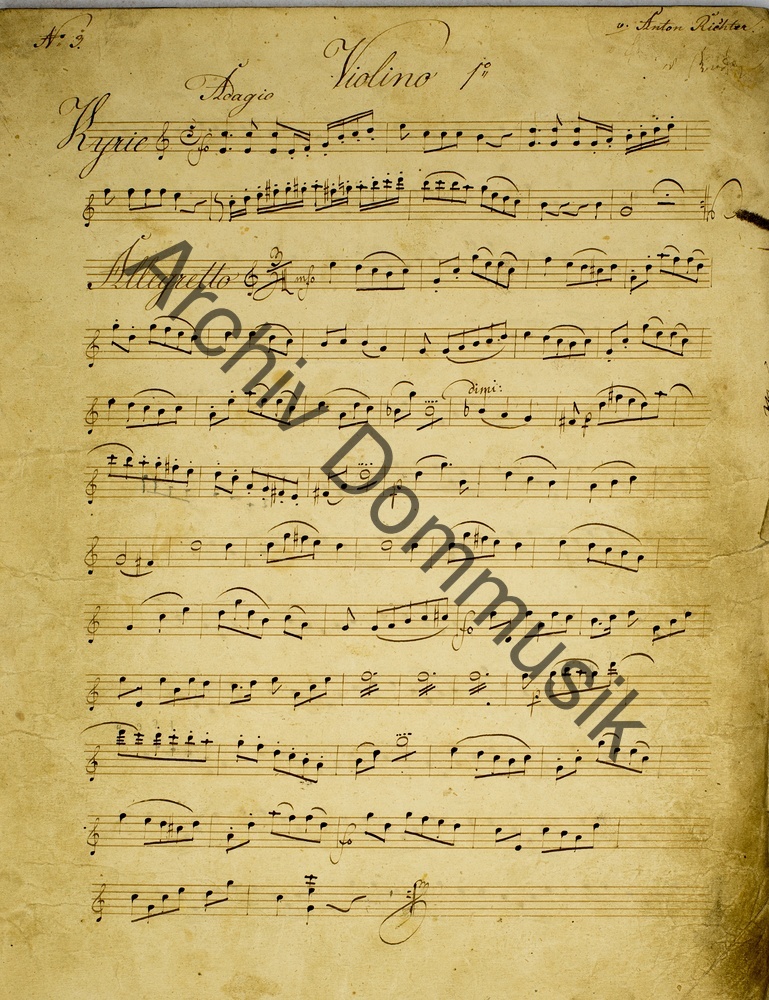 No 9.
v. Anton Richter.
Violino 1o
Adagio
Kyrie
fo
Allegretto
3
mfo
dimi:
fo
fo
Archiv Dommusik